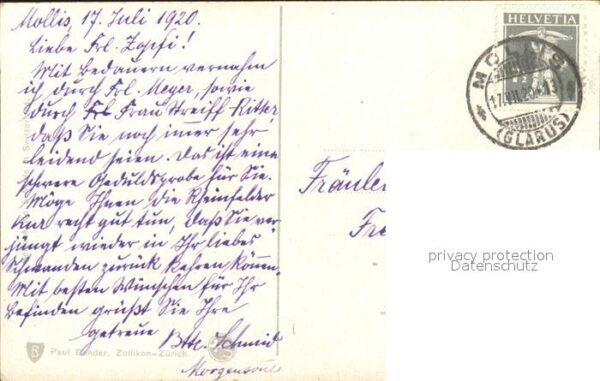 Mollis 17. Juli 1920.
Liebe Frl. Zopfi!
Mit Bedauern vernahm
ich durch Frl. Meyer, sowie
durch Frl Frau Streiff Ritter
daß Sie noch immer sehr
leidend seien. Das ist eine
schwere Geduldsprobe für Sie.
Möge Ihnen die Rheinfelder
Kur recht gut tun, daß Sie ver
jüngt wieder in Ihr liebes
Schwanden zurück kehren können.
Mit besten Wünschen für Ihr
Befinden grüßt Sie Ihre
getreue Schmid
Paul Bender, Zollikon-Zürich.
HELVETIA
MOLLIS
17.VII.20-13
(GLARUS)
Fräulei
Fr
privacy protection
Datenschutz